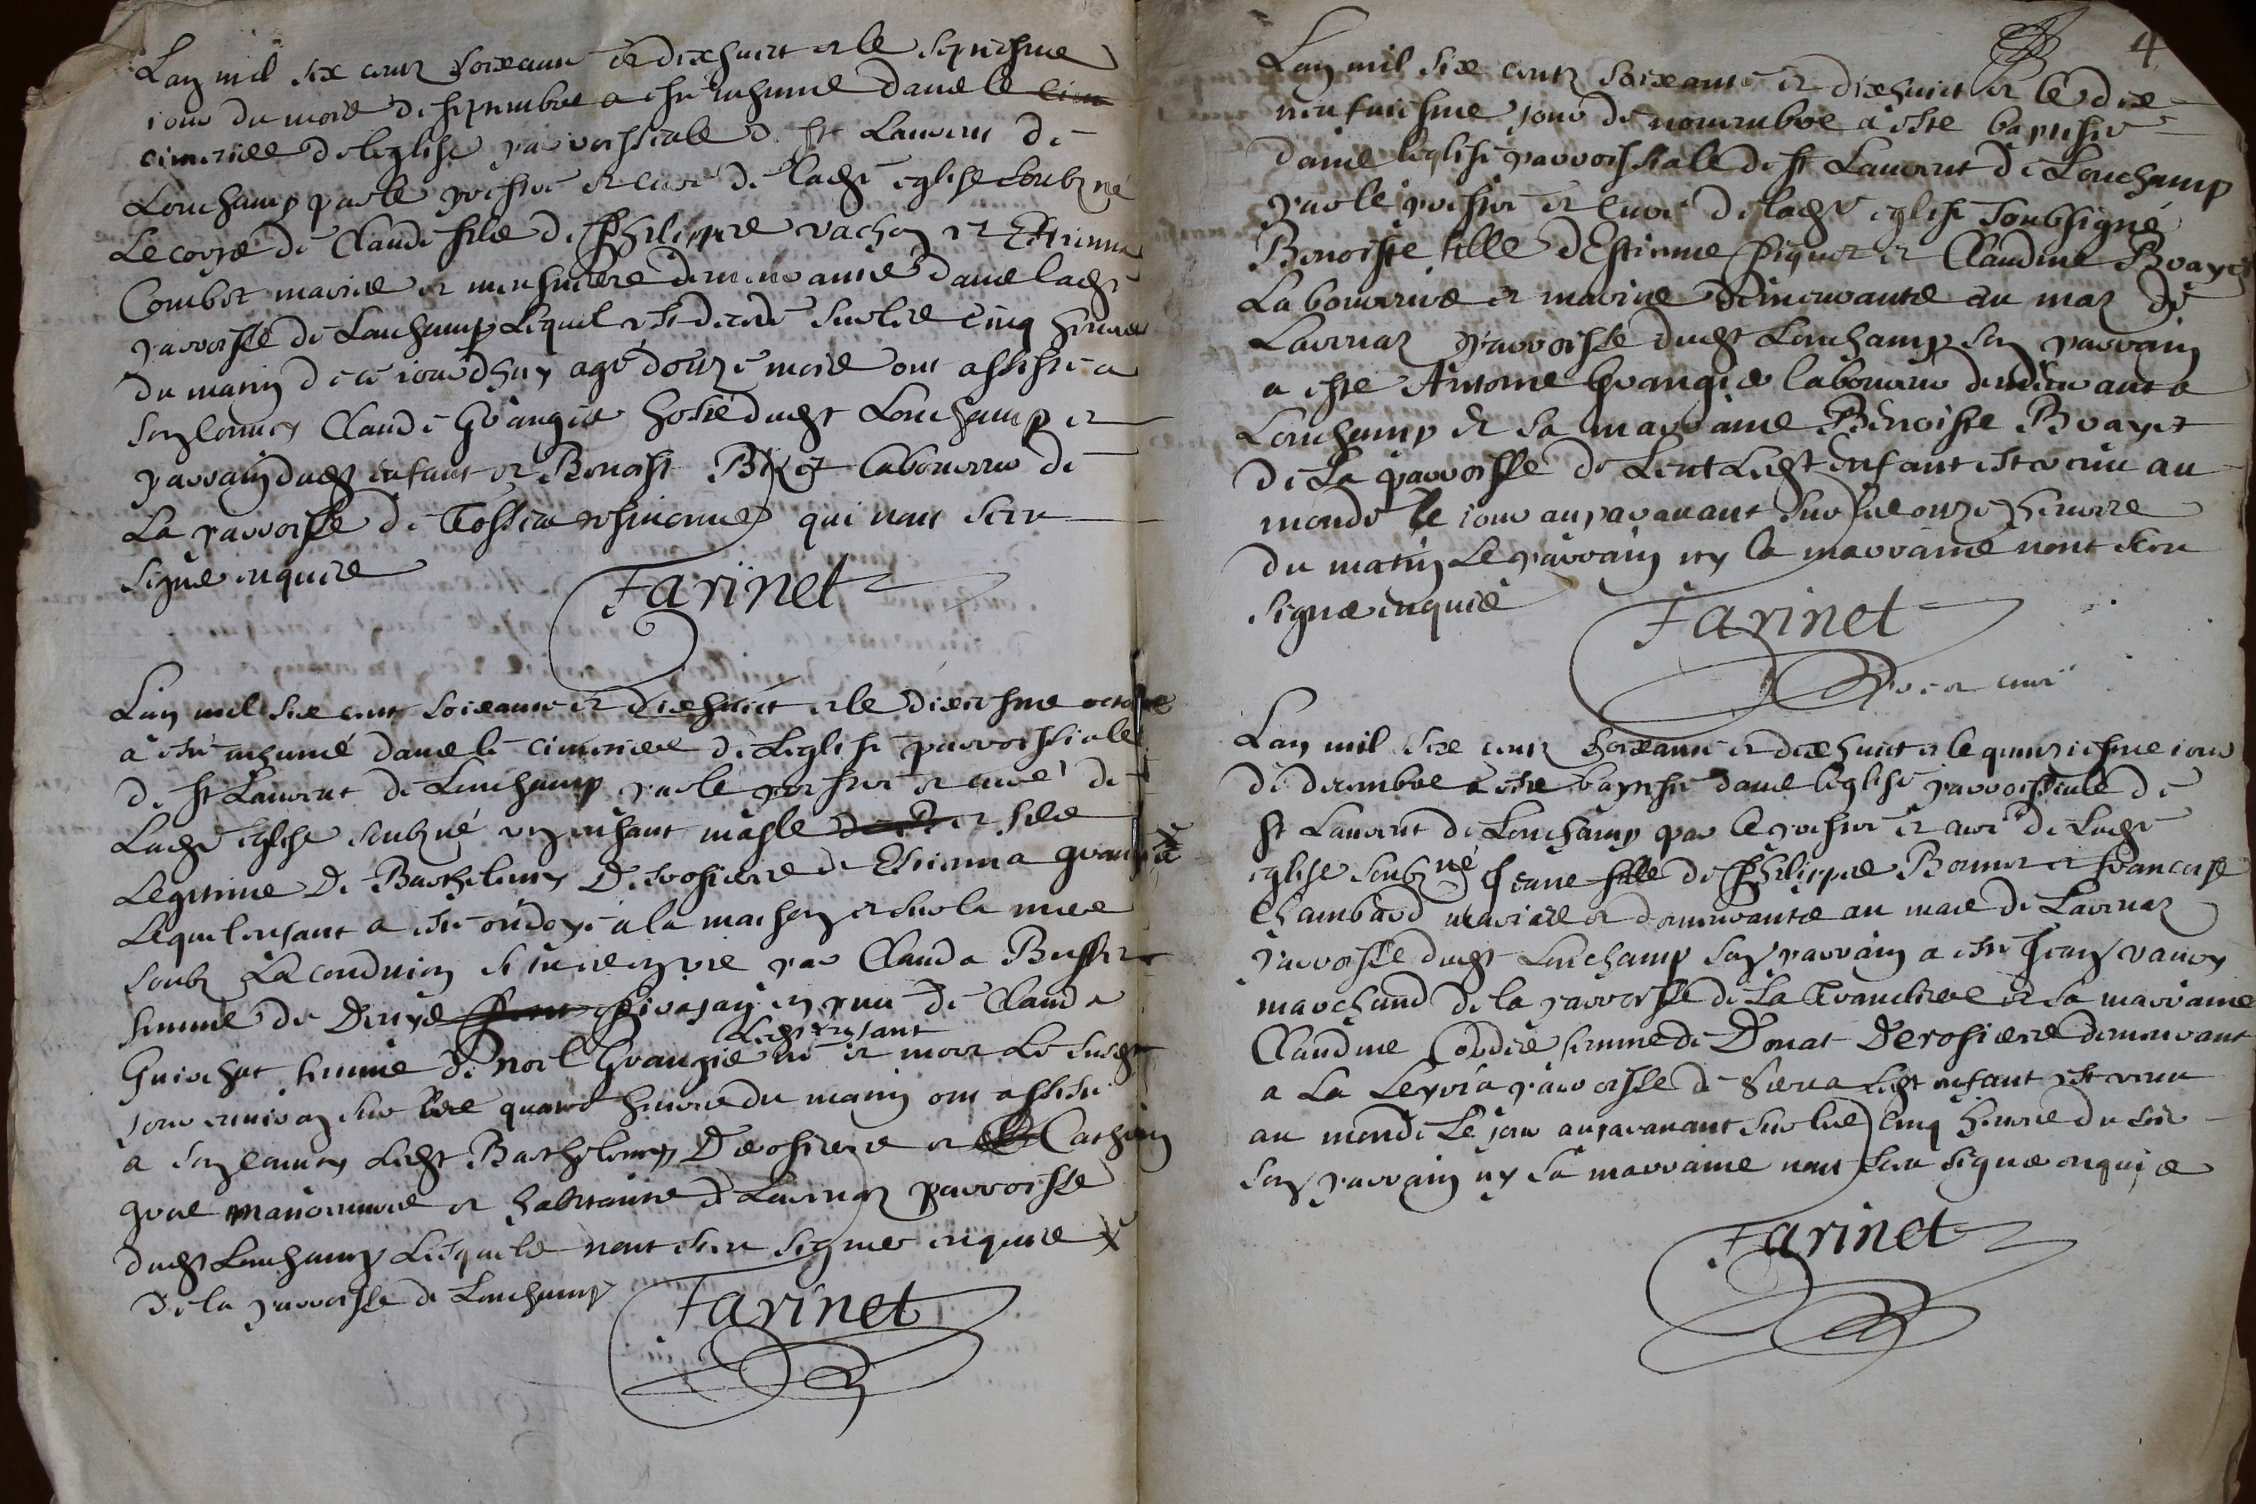 Lan mil six cent soixante et dixhuict et le septiesme
jour du mois de septembre a esté inhumé dans le
cimetiere de leglise parroissiale de St Laurent de
Lonchamp par le prestre et curé de ladte eglise soubzné
Le corps de Claude fils de Philippe vachon et Estienna
Combet mariés et demeurants dans ladte
parroisse de Lonchamp Lequel est decedé sur les cinq heures
du matin de ce jourdhuy agé donze mois ont assisté a
son convoy Claude Grangie hoste dudt Lonchamp et
parrain dudt enfant et Benoist laboureur de
La parroisse de qui nont sceu
signer enquis
Farinet
Lan mil six cent soixante et dixhuict et le dixiesme octobre
a esté inhumé dans le cimetiere de Leglise parroissiale
de St Laurent de Lonchamp par le prestre et curé de
Ladte Eglise soubzné un enfant masle et fils
Legitime de Barthelemy Derosiere et de Estienna
Lequel enfant a esté ondoyé a la maison et sur la mere
soubz La condition si tu es en vie par Clauda
femme de Denys en pnce de Clauda
Guichat femme de Noel Grangie ledt enfant né et mort Le susdt
jour environ sur les quatre heures du matin ont assisté
a son convoy Ledt Barthelemy Derosiere et
et habitants de Lavenaz parroisse
dudt Lonchamp Lesquels nont sceu signer enquis
de la parroisse de Lonchamp
Farinet
4
Lan mil six cent soixante et dixhuict et le dix
neufviesme jour de novembre a este baptisée
dans leglise parroissiale de St Laurent de Lonchamp
par le prestre et curé de ladte eglise soubsigné
Benoiste fille dEstienne Piquet et Claudine Brayet
Laboureurs et mariés demeurants au mas de
Lavenaz parroisse dudt Lonchamp son parrain
a este Antoine Grangie laboureur demeurant a
Lonchamp et sa marraine Benoiste Brayet
de La parroisse de Lent Ledt enfant est venu au
monde le jour auparavant sur les onze heures
du matin Le parrain ny la marraine nont sceu
signer enquis
Farinet
pbre et curé
Lan mil six cent soixante et dixhuict et le quinziesme jour
de decembre a este baptisée dans leglise parroissiale de
St Laurent de Lonchamp par le prestre et curé de Ladte
eglise soubzné Jeane fille de Philippe Bonnet et francoise
Chambard mariés et demeurants au mas de Lavenaz
parroisse dudt Lonchamp son parrain a esté Jean vaney
marchand de la parroisse de La Trancliere et sa marraine
Claudine Cordier femme de Donat Derosiere demeurant
a La Leyria parroisse de Siena Ledt enfant est venu
au monde Le jour auparavant sur les cinq heures du soir
son parrain ny sa marraine nont sceu signer enquis
Farinet